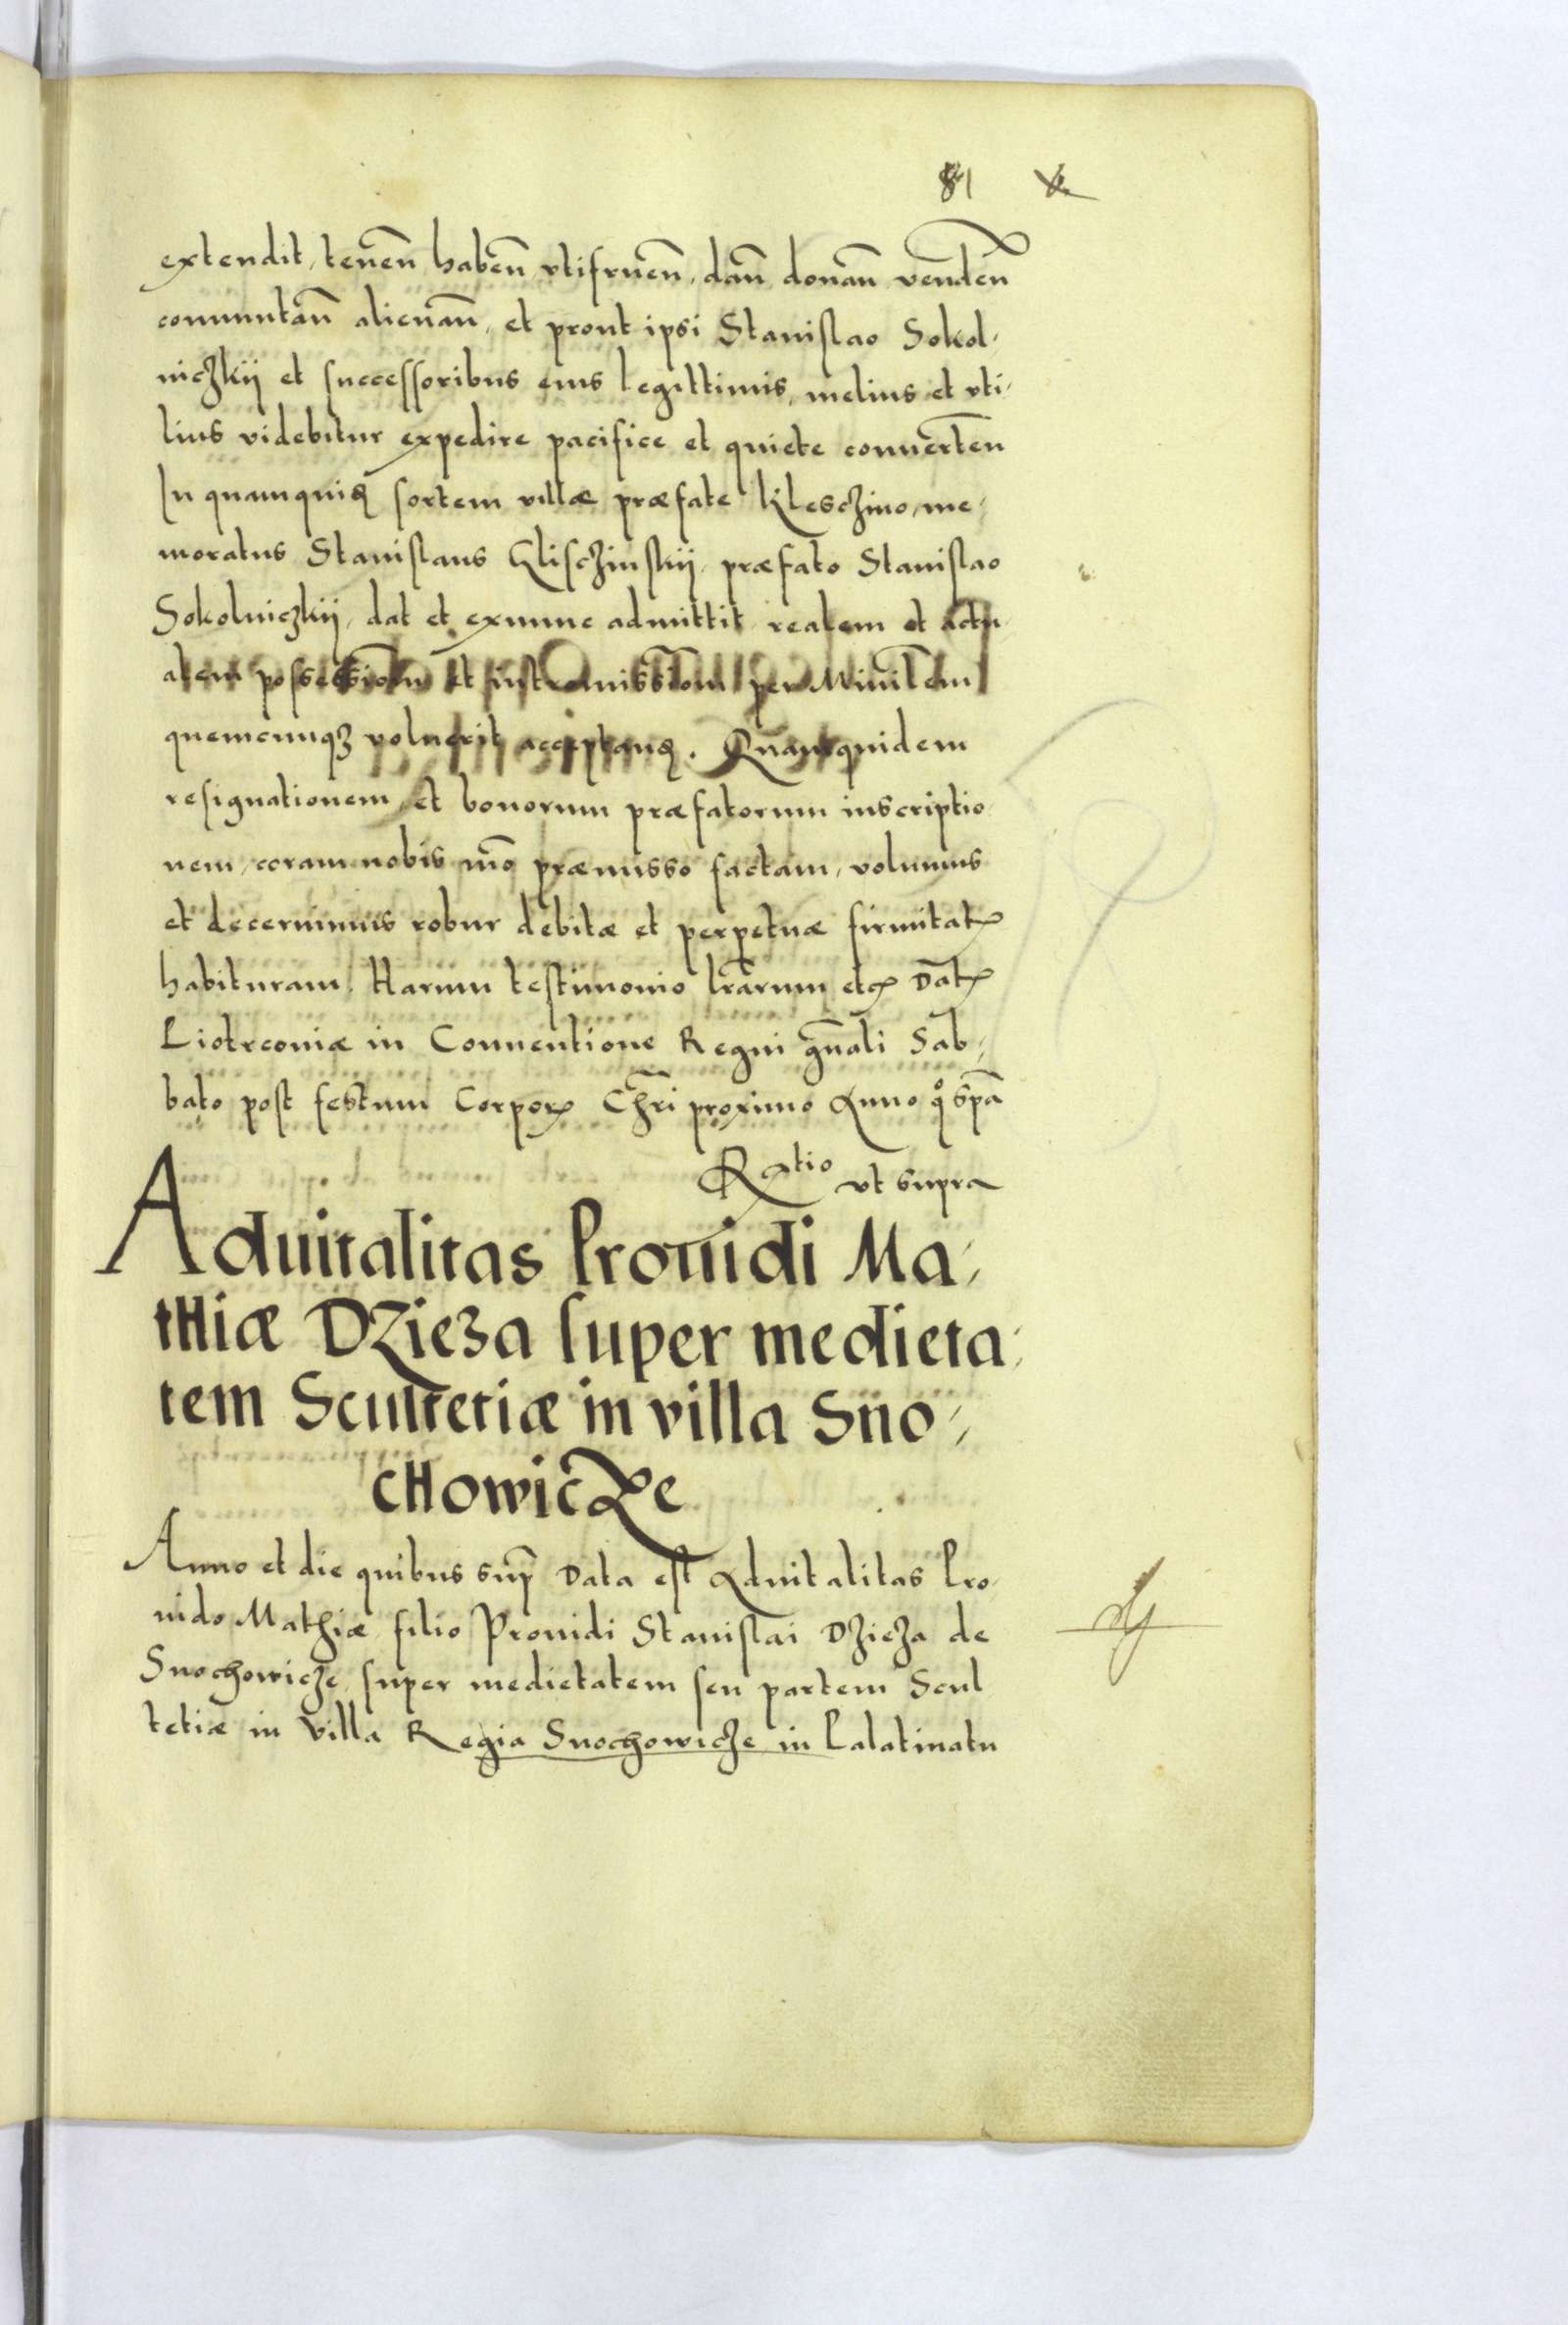 81
extendit, tenen̄ haben̄ vtifruen̄, dan̄ donan̄ venden̄
commutan̄ alienan̄, et prout ipsi Stanislao Sokol-
niczkij et successoribus eius legittimis, melius et vti-
lius videbitur expedire pacifice et quiete conuerten̄
In quamquid sortem villæ præfate Klesczino, me-
moratus Stanislaus Klisczinskij, præfato Stanislao
Sokolniczkij, dat et exnunc admittit realem et actu-
alem possession̄ et intromission̄ per Minīlem
quemcunqꝫ voluerit acceptand. Quamquidem
resignationem, et bonorum præfatorum inscriptio-
nem, coram nobis mō præmisso factam, volumus
et decernimus robur debitæ et perpetuæ firmitatꝭ
habituram. Harum testimonio lrārum etcꝭ Datꝭ
Piotrcouiæ in Conuentione Regni gn̄ali Sab-
bato post festum Corporꝭ Chr̄i proximo Anno qͦ spā
R̃atio vt supra
Aduitalitas Prouidi Ma-
thiæ Dzieza super medieta-
tem Scultetiæ in villa Sno-
chowicze
Anno et die quibus sup̄ Data est Aduitalitas Pro-
uido Mathiæ filio Prouidi Stanislai Dzieza de
Snochowicze, super medietatem seu partem Scul
tetiæ in Villa Regia Snochowicze in Palatinatu